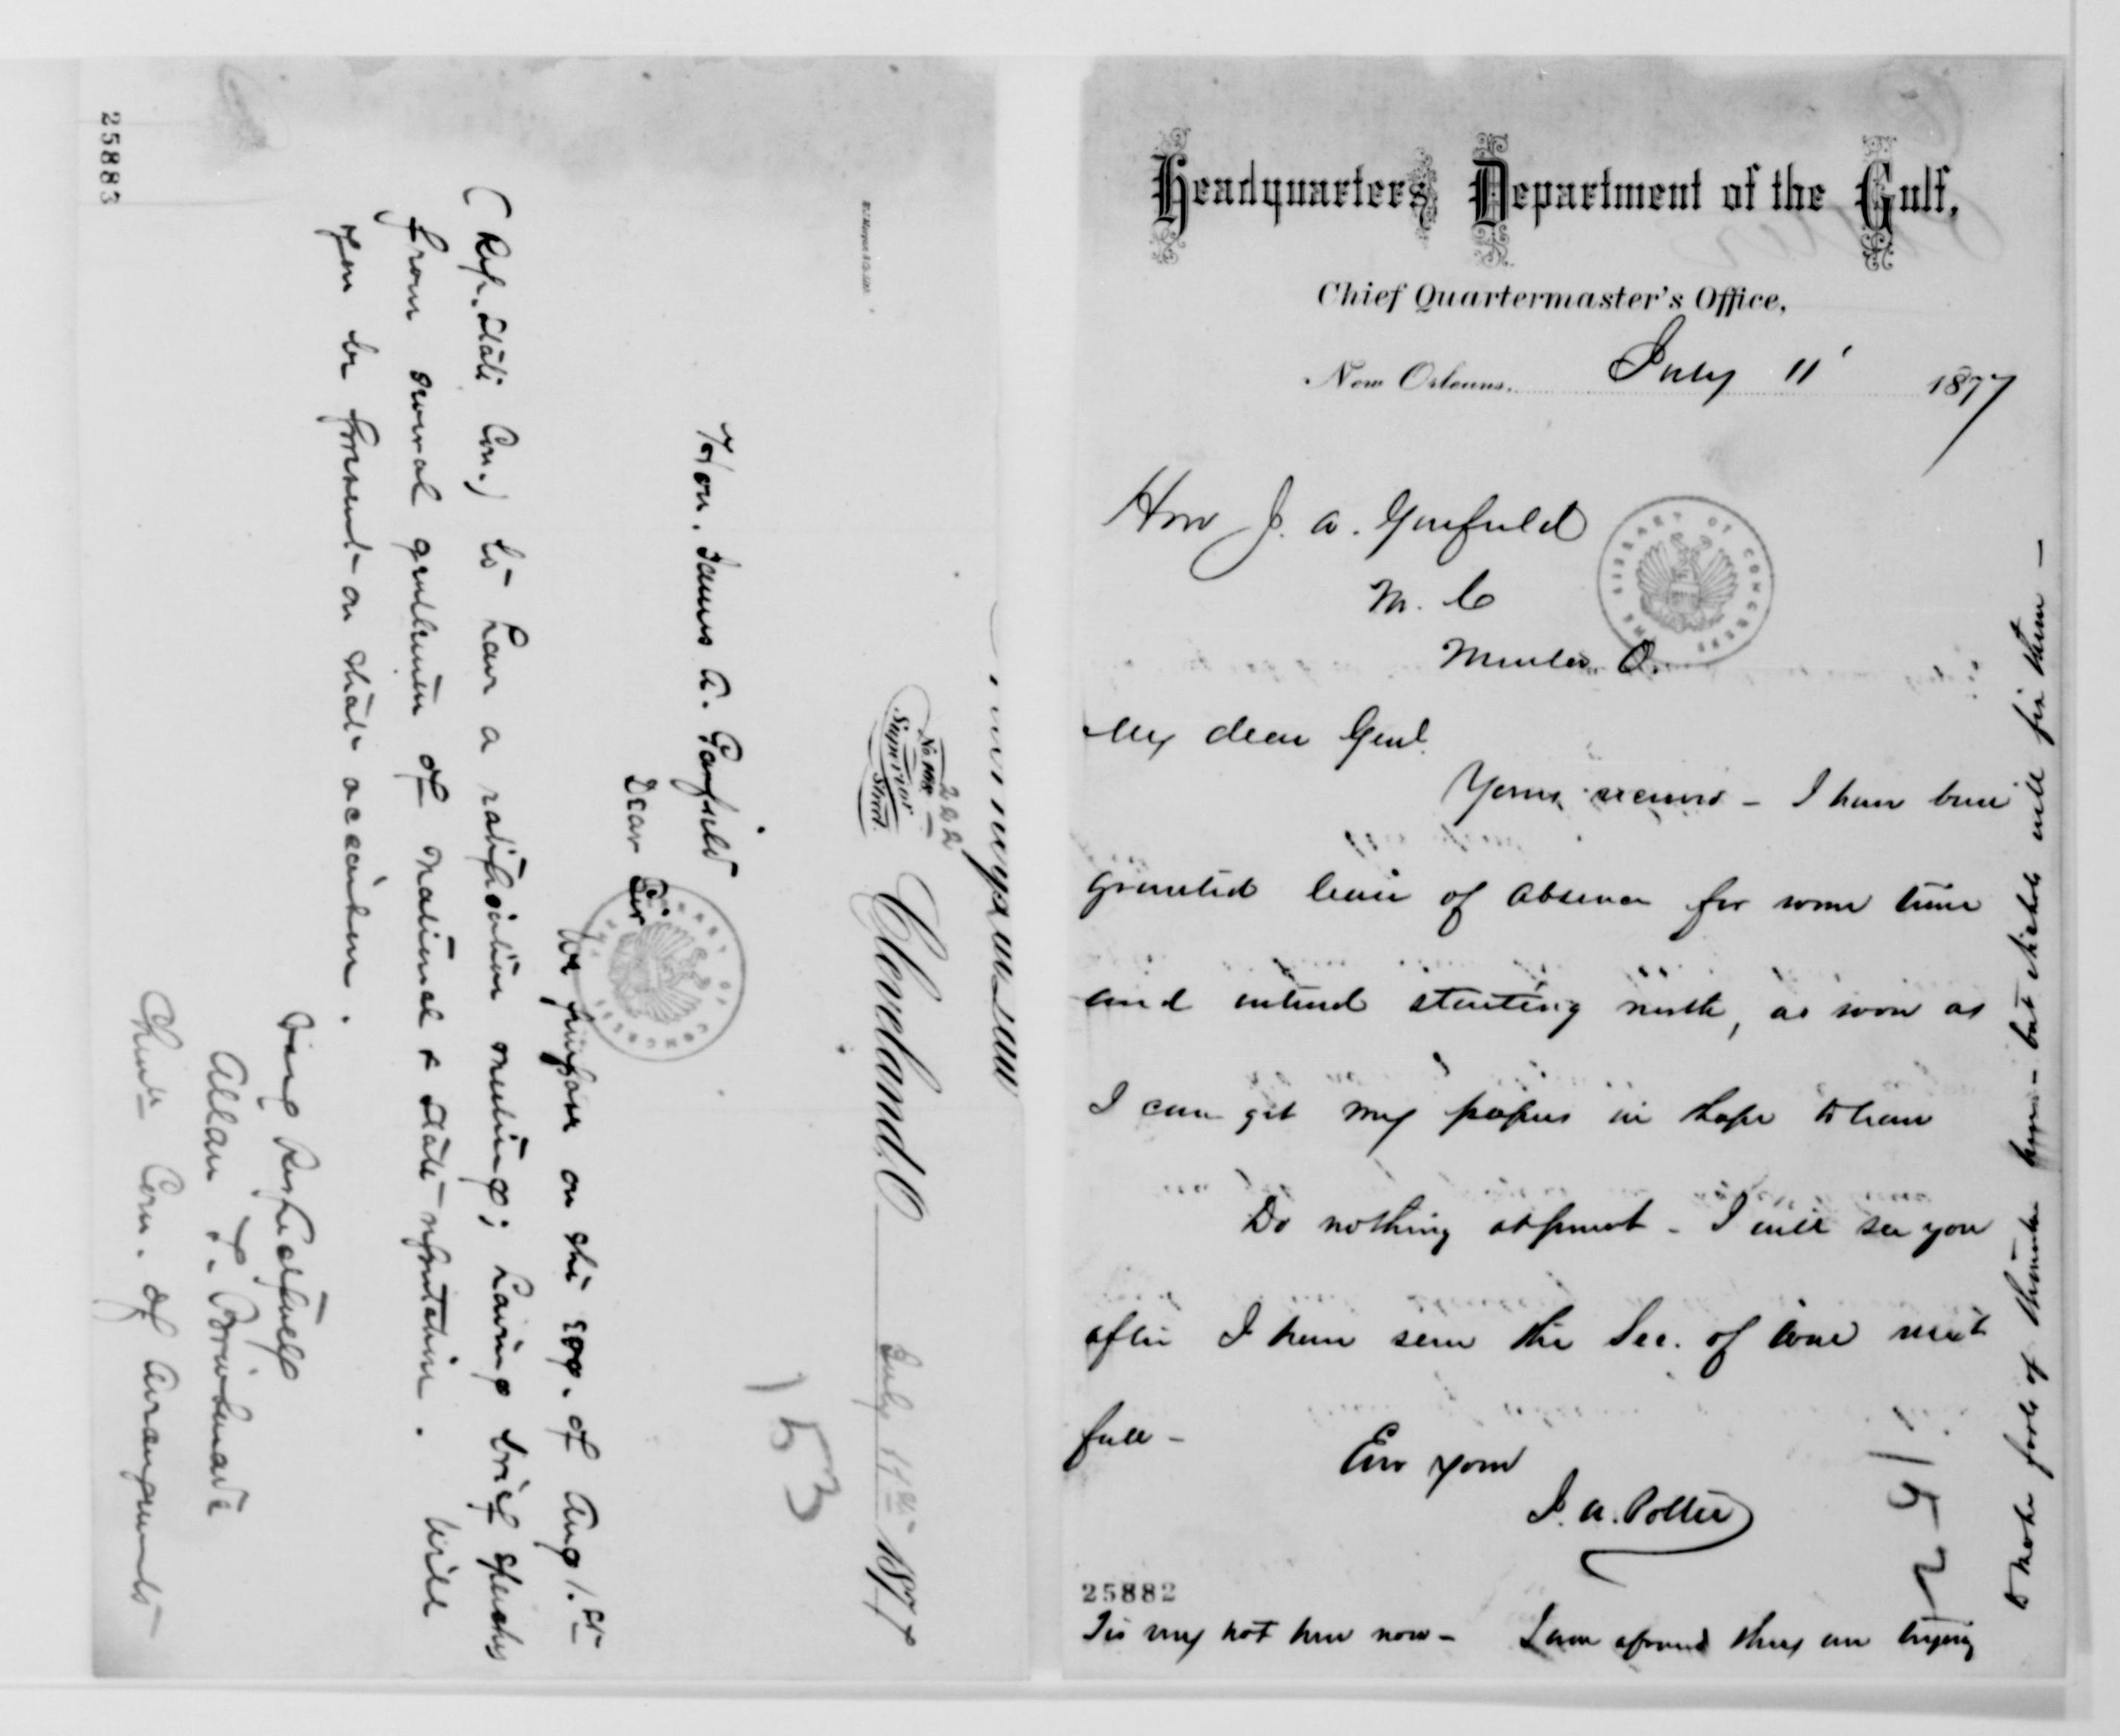 25883
222
Superior
Street.
Cleveland, O July 11th 1877
Hon. James A. Garfield
Dear Sir
We purpose on the evg. of Aug 1.st
(Rep. State Con.) to have a ratification meeting; having brief speeches
from several gentlemen of national & State reputation. Will
you be present on that occasion.
Very Respectfully
Allan T. Brinsmade
Chm. Com. of Arrangements
153
Headquarters Department of the Gulf,
Chief Quartermaster's Office,
New Orleans, July 11' 1877
Hon J. A. Garfield
M. C
Mentor O.
My dear Genl.
Yours received – I have been
granted leave of absence for some time
and intend starting north, as soon as
I can get my papers in shape to leave
Do nothing at present – I will see you
after I have seen the Sec. of War next
fall –
Ever yours
J. A. Potter
152
25882
Tis very hot here now – I am afraid they are trying
to make fools of themselves here – but Nichols will fix them –
LIBRARY OF CONGRESS